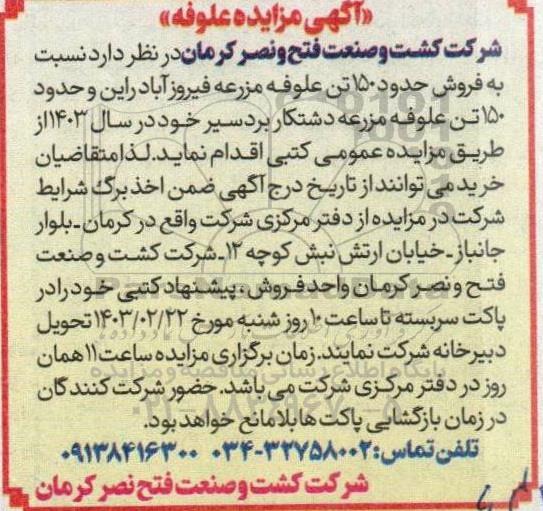 «آگهی مزایده علوفه»
شرکت کشت و صنعت فتح و نصر کرمان در نظر دارد نسبت
به فروش حدود ۱۵۰ تن علوفه مزرعه فیروزآباد راین و حدود
۱۵۰ تن علوفه مزرعه دشتکار بردسیر خود در سال ۱۴۰۳ از
طریق مزایده عمومی کتبی اقدام نماید. لذا متقاضیان
خرید می توانند از تاریخ درج آگهی ضمن اخذ برگ شرایط
شرکت در مزایده از دفتر مرکزی شرکت واقع در کرمان ـ بلوار
جانباز ـ خیابان ارتش نبش کوچه ۱۲ ـ شرکت کشت و صنعت
فتح و نصر کرمان واحد فروش ، پیشنهاد کتبی خود را در
پاکت سربسته تا ساعت ۱۰ روز شنبه مورخ ۱۴۰۳/۰۲/۲۲ تحویل
دبیرخانه شرکت نمایند. زمان برگزاری مزایده ساعت ۱۱ همان
روز در دفتر مرکزی شرکت می باشد. حضور شرکت کنندگان
در زمان بازگشایی پاکت ها بلامانع خواهد بود.
تلفن تماس: ۳۲۷۵۸۰۰۲-۰۳۴ ۰۹۱۳۸۴۱۶۳۰۰
شرکت کشت و صنعت فتح نصر کرمان